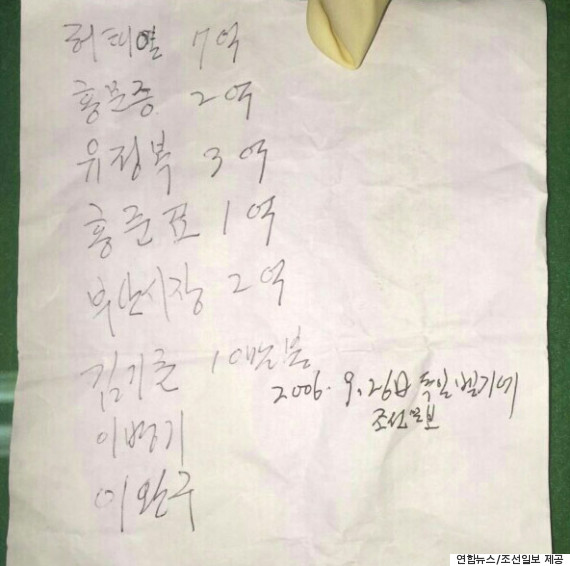 허태열 7억
홍문종 2억
유정복 3억
홍준표 1억
부산시장 2억
김기춘 10만불
2006. 9. 26日 독일 벨기에
조선일보
이병기
이완구
연합뉴스/조선일보 제공